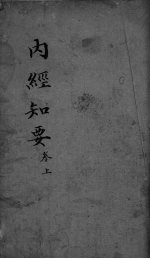 內經知要
卷上